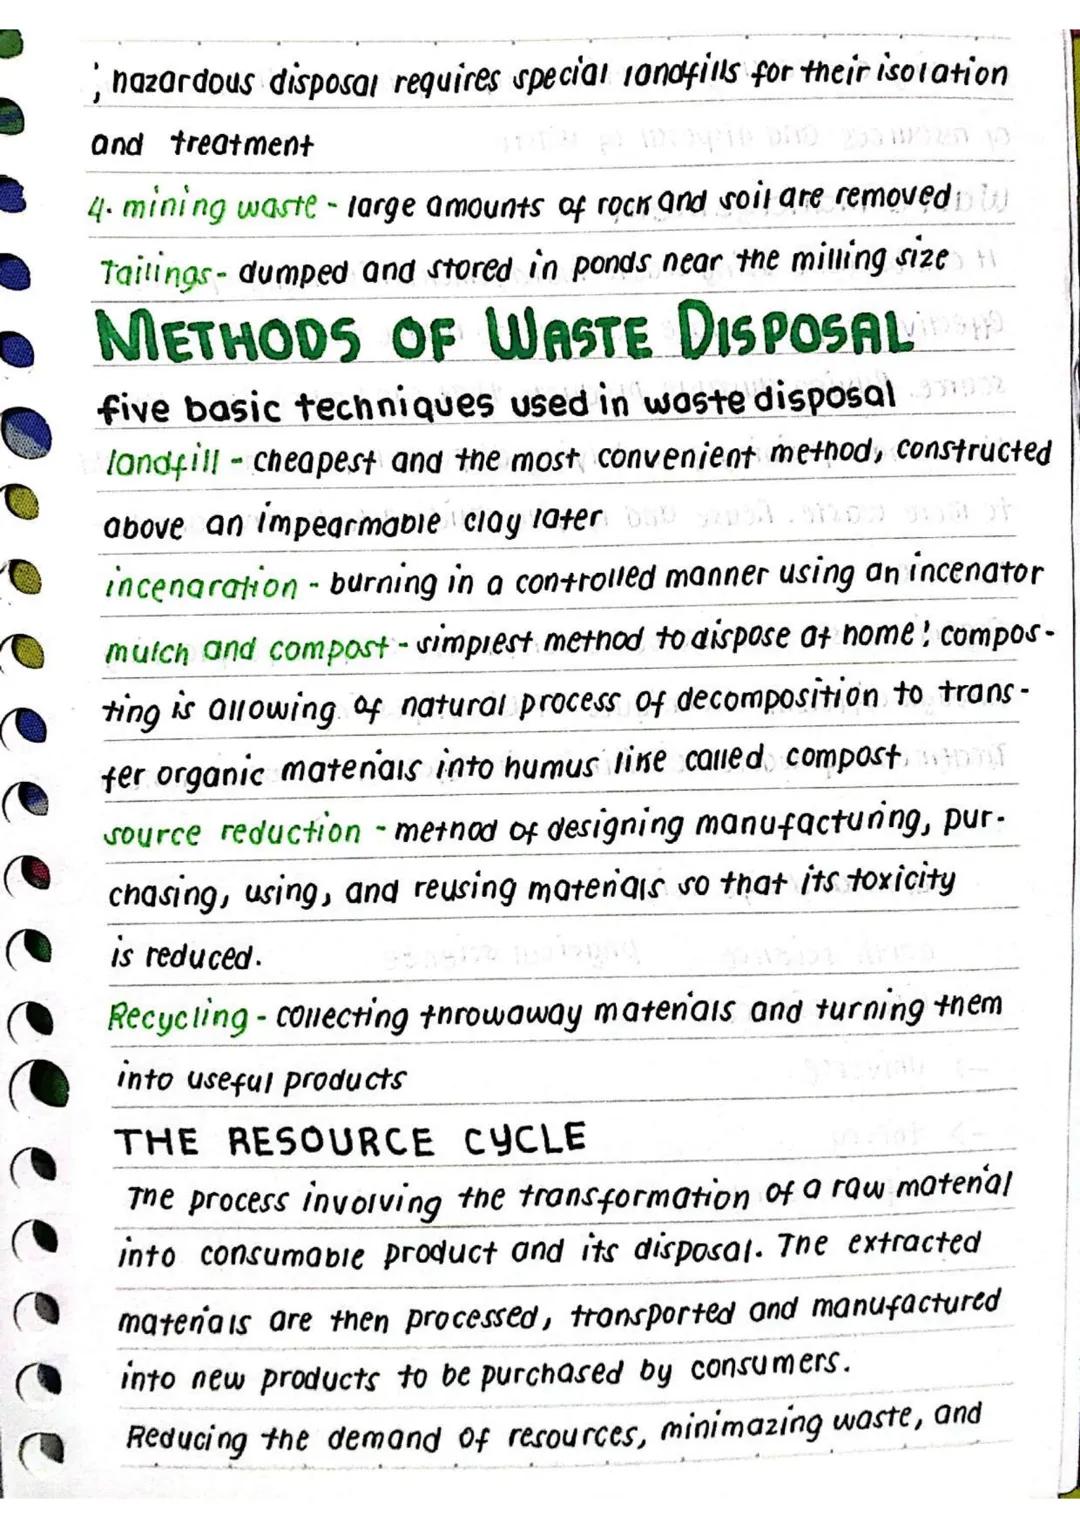 ; hazardous disposal requires special landfills for their isolation
and treatment
4. mining waste - large amounts of rock and soil are removed
Tailings - dumped and stored in ponds near the milling size
METHODS OF WASTE DISPOSAL
five basic techniques used in waste disposal
landfill - cheapest and the most convenient method, constructed
above an impearmable clay later
incenaration - burning in a controlled manner using an incenator
mulch and compost - simplest method to dispose at home; compos-
ting is allowing of natural process of decomposition to trans-
fer organic materials into humus like called compost
source reduction - method of designing manufacturing, pur-
chasing, using, and reusing materials so that its toxicity
is reduced.
Recycling - collecting throwaway materials and turning them
into useful products
THE RESOURCE CYCLE
The process involving the transformation of a raw material
into consumable product and its disposal. The extracted
materials are then processed, transported and manufactured
into new products to be purchased by consumers.
Reducing the demand of resources, minimazing waste, and